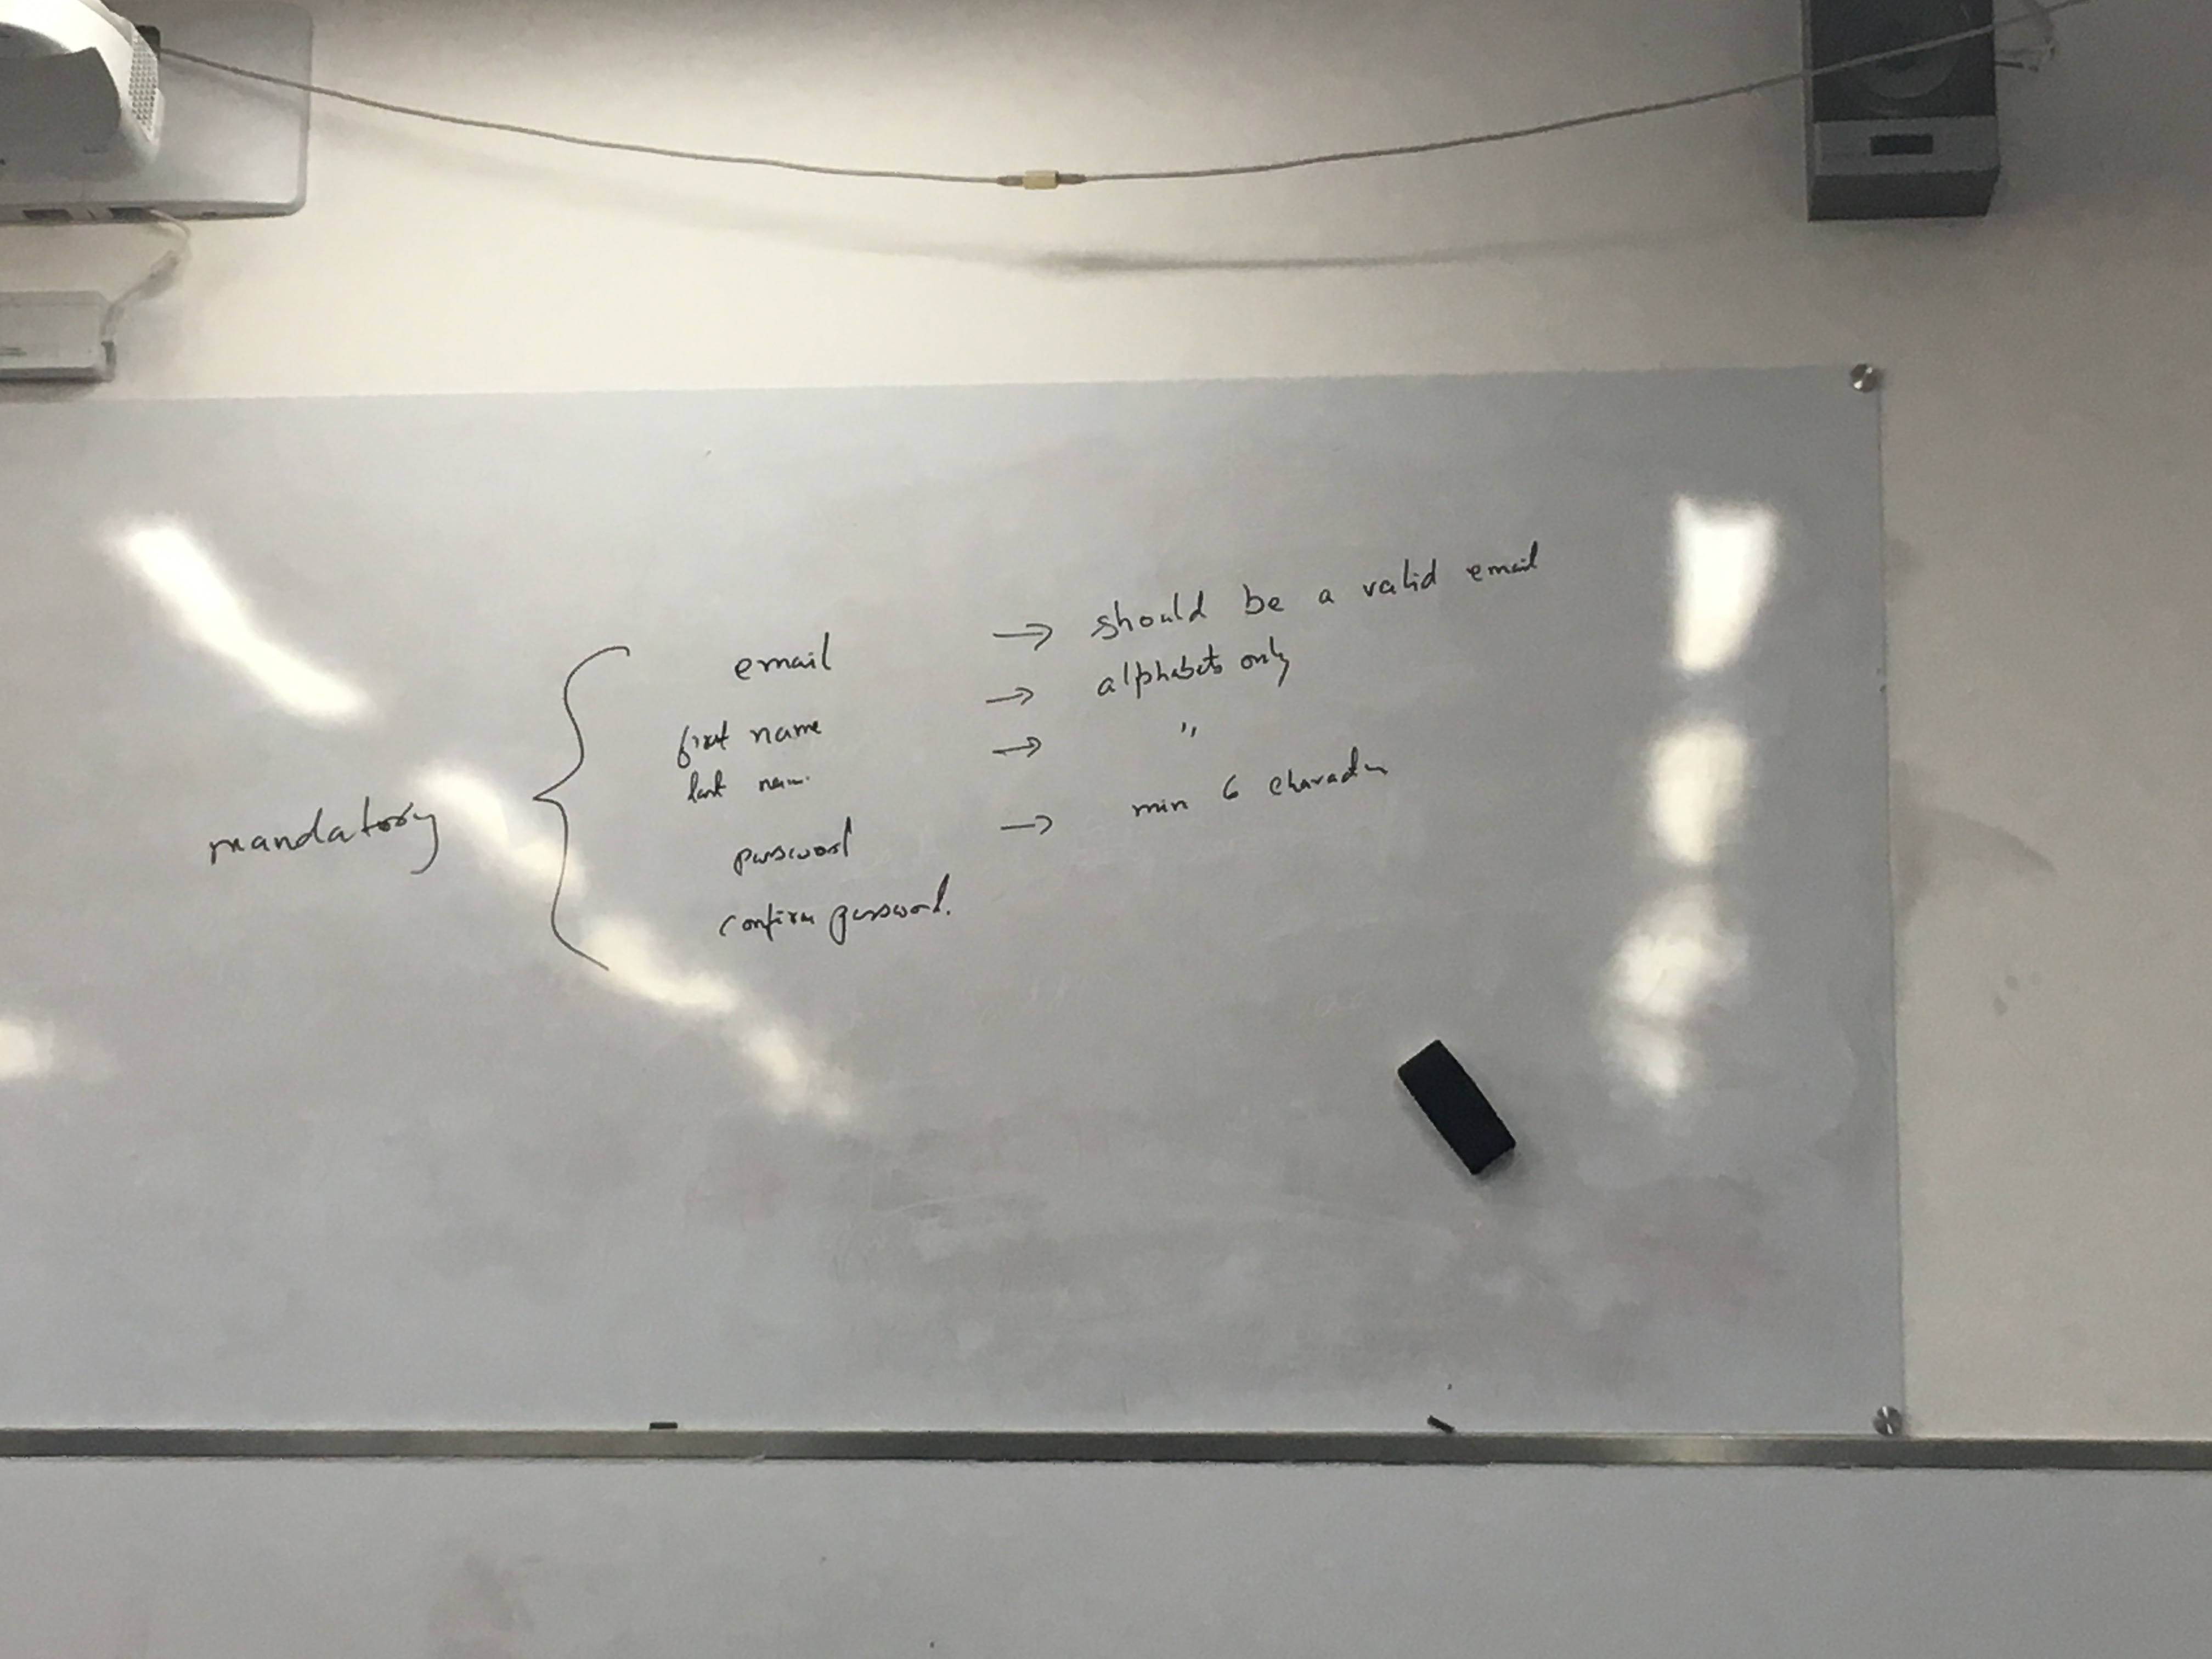 email → should be a valid email
first name → alphabets only
last name → "
mandatory {
password → min 6 character
confirm password.